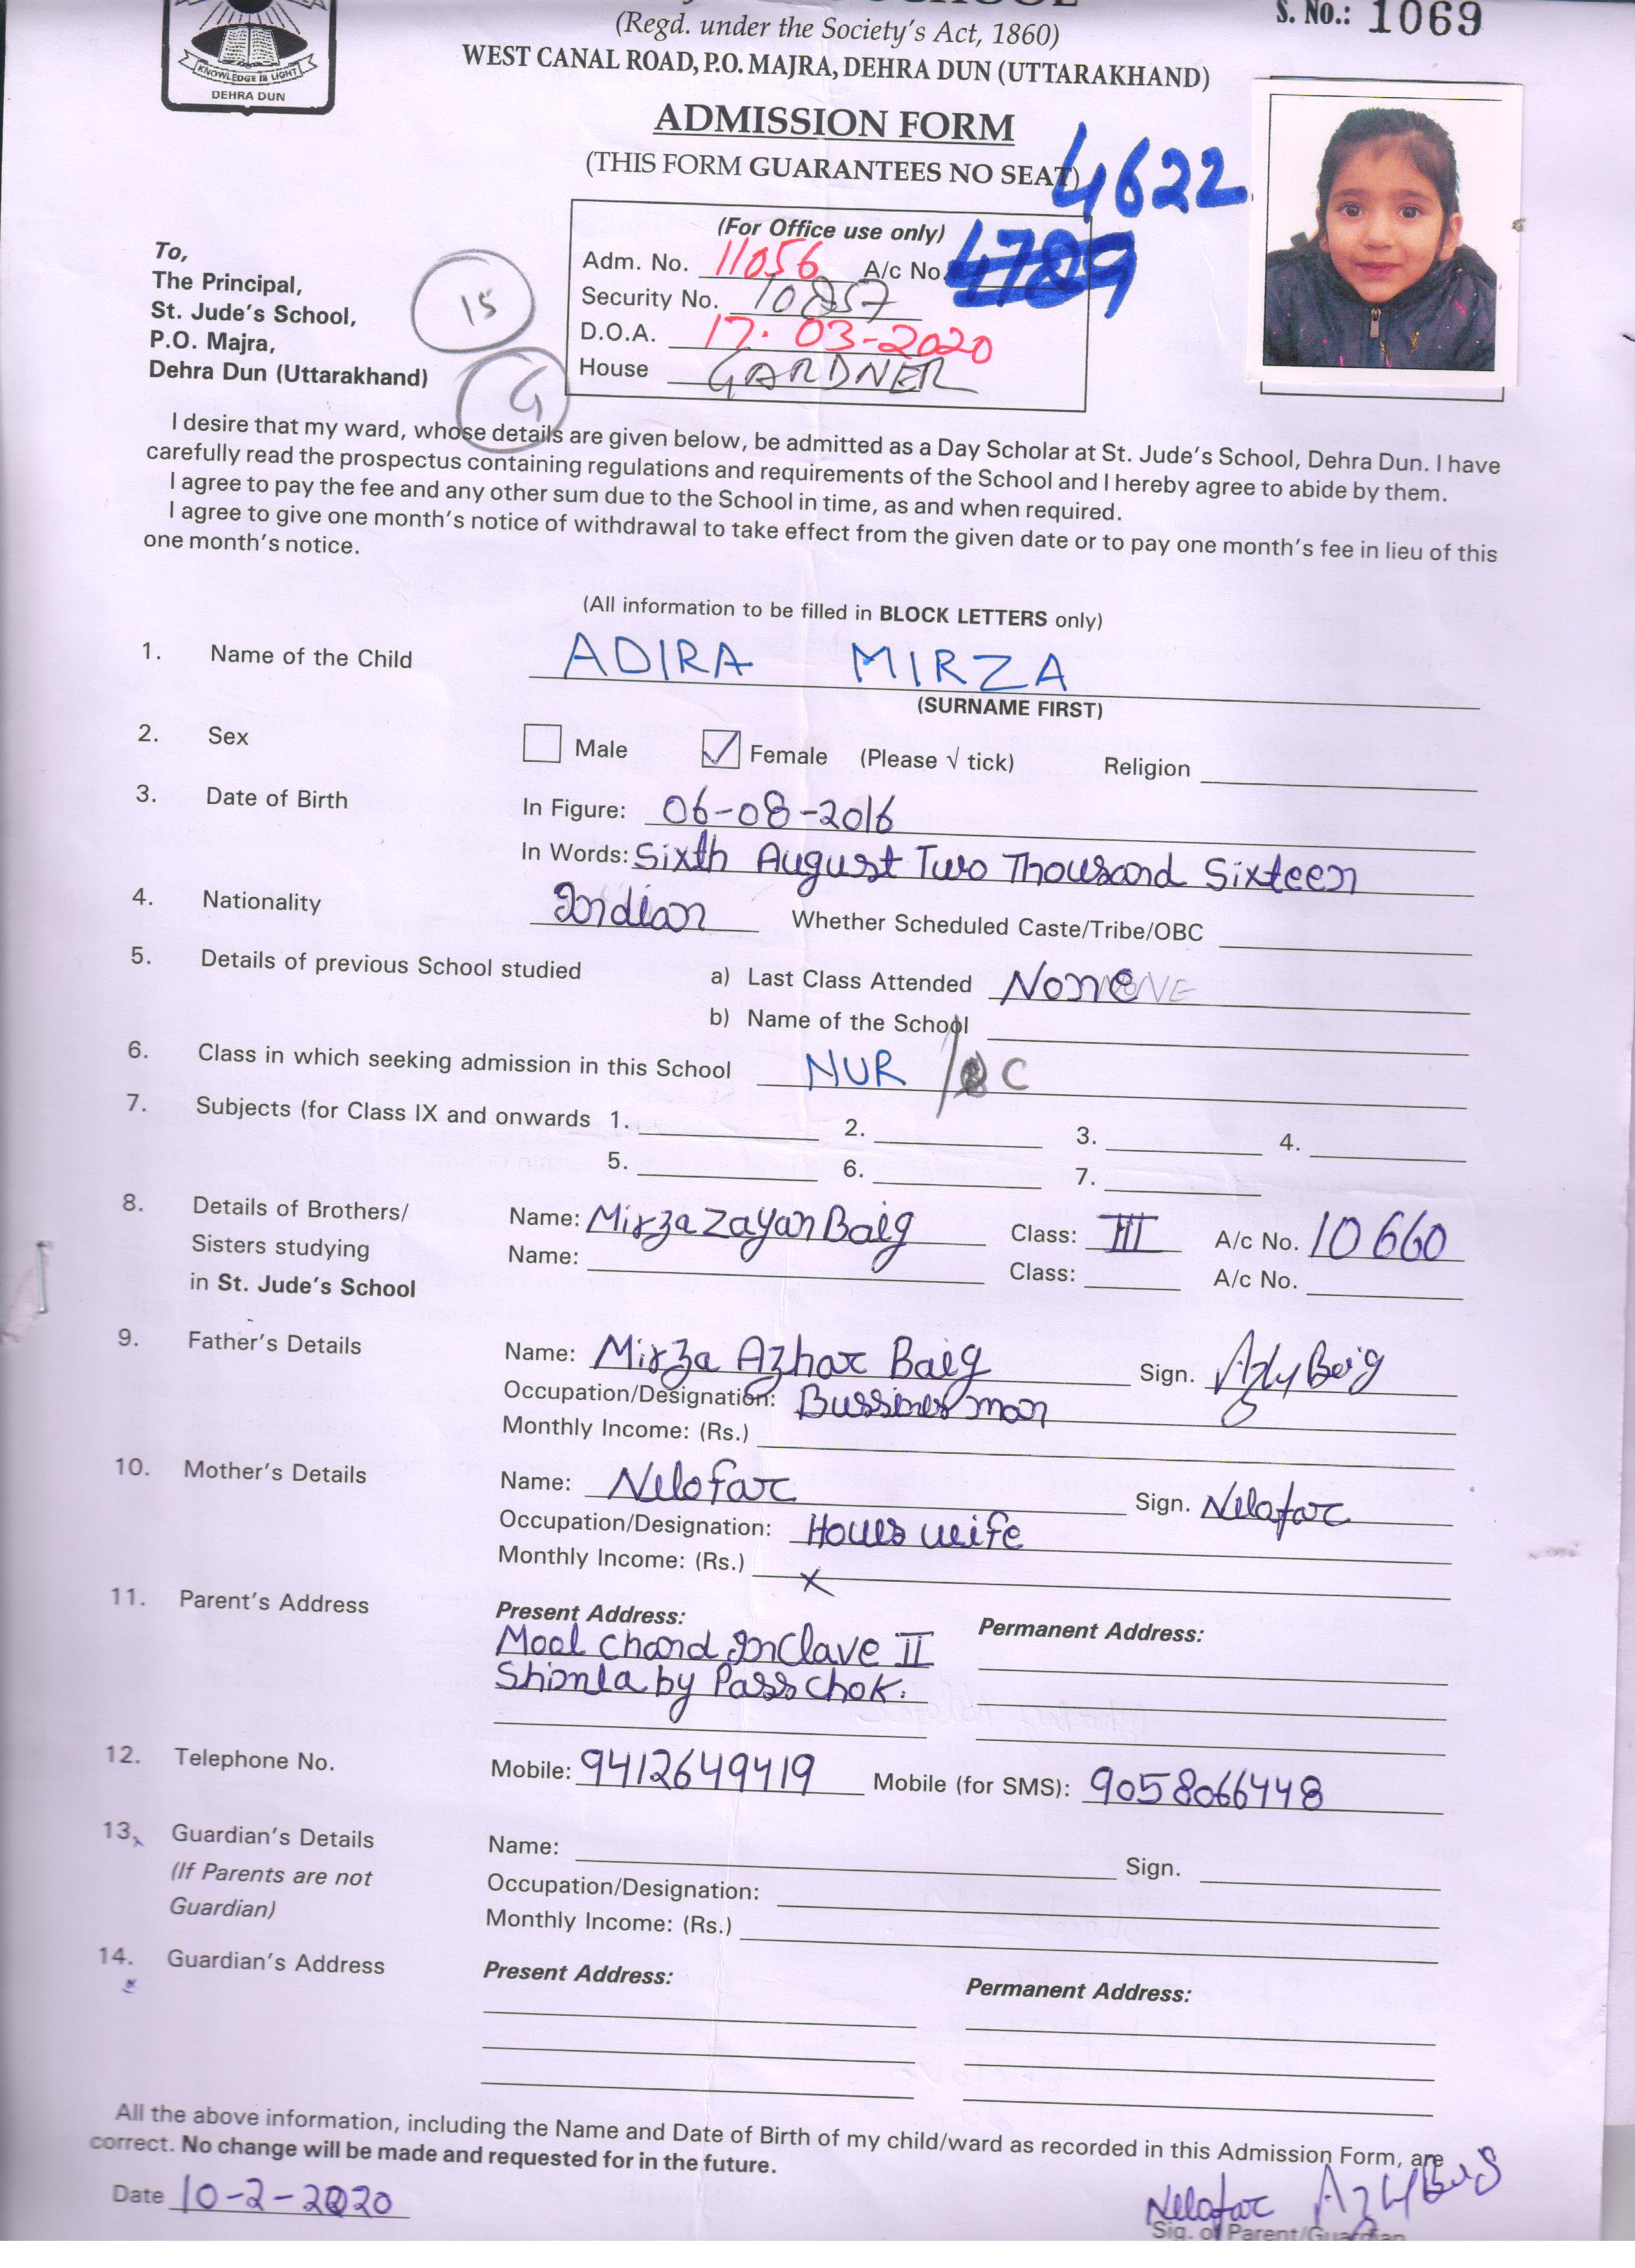 S. No.: 1069
(Regd. under the Society's Act, 1860)
WEST CANAL ROAD, P.O. MAJRA, DEHRA DUN (UTTARAKHAND)
KNOWLEDGE IS LIGHT
DEHRA DUN
ADMISSION FORM
(THIS FORM GUARANTEES NO SEAT)
4622
(For Office use only)
Adm. No. 11056 A/c No. 4789
Security No. 10857
D.O.A. 17.03-2020
House GARDNER
To,
The Principal,
St. Jude's School,
P.O. Majra,
Dehra Dun (Uttarakhand)
15
G
I desire that my ward, whose details are given below, be admitted as a Day Scholar at St. Jude's School, Dehra Dun. I have
carefully read the prospectus containing regulations and requirements of the School and I hereby agree to abide by them.
I agree to pay the fee and any other sum due to the School in time, as and when required.
I agree to give one month's notice of withdrawal to take effect from the given date or to pay one month's fee in lieu of this
one month's notice.
(All information to be filled in BLOCK LETTERS only)
1. Name of the Child ADIRA MIRZA
(SURNAME FIRST)
2. Sex Male Female (Please √ tick) Religion
3. Date of Birth In Figure: 06-08-2016
In Words: Sixth August Two Thousand Sixteen
4. Nationality Indian Whether Scheduled Caste/Tribe/OBC
5. Details of previous School studied a) Last Class Attended None NONE
b) Name of the School
6. Class in which seeking admission in this School NUR / C
7. Subjects (for Class IX and onwards 1. 2. 3. 4.
5. 6. 7.
8. Details of Brothers/ Name: Mirza Zayan Baig Class: III A/c No. 10660
Sisters studying Name: Class: A/c No.
in St. Jude's School
9. Father's Details Name: Mirza Azhar Baig Sign.
Occupation/Designation: Bussines man
Monthly Income: (Rs.)
10. Mother's Details Name: Nelofar Sign. Nelofar
Occupation/Designation: Hows wife
Monthly Income: (Rs.) x
11. Parent's Address Present Address: Permanent Address:
Mool chand Inclave II
Shimla by Pass chok.
12. Telephone No. Mobile: 9412649419 Mobile (for SMS): 9058066448
13. Guardian's Details Name: Sign.
(If Parents are not Occupation/Designation:
Guardian) Monthly Income: (Rs.)
14. Guardian's Address Present Address: Permanent Address:
All the above information, including the Name and Date of Birth of my child/ward as recorded in this Admission Form, are
correct. No change will be made and requested for in the future.
Date 10-2-2020 Nelofar
Sig. of Parent/Guardian